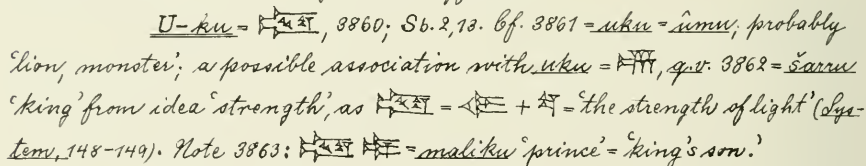 U-ku = , 3860; Sb. 2, 13. Cf. 3861 = uku = ûmu; probably
'lion, monster'; a possible association with uku = , q.v. 3862 = šarru
'king' from idea 'strength', as = + = 'the strength of light' (Sys-
tem, 148-149). Note 3863: = maliku 'prince' = 'king's son.'